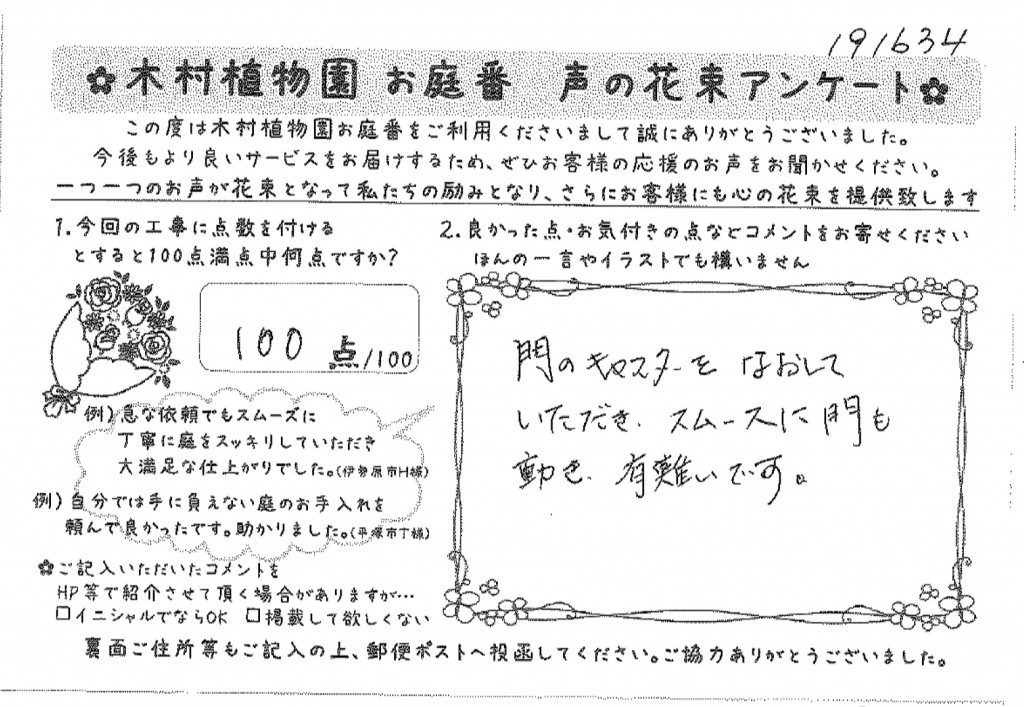 191634
✿木村植物園 お庭番 声の花束アンケート✿
この度は木村植物園お庭番をご利用くださいまして誠にありがとうございました。
今後もより良いサービスをお届けするため、ぜひお客様の応援のお声をお聞かせください。
一つ一つのお声が花束となって私たちの励みとなり、さらにお客様にも心の花束を提供致します
1.今回の工事に点数を付ける
とすると100点満点中何点ですか?
100 点/100
例)急な依頼でもスムーズに
丁寧に庭をスッキリしていただき
大満足な仕上がりでした。(伊勢原市H様)
例)自分では手に負えない庭のお手入れを
頼んで良かったです。助かりました。(平塚市T様)
✿ご記入いただいたコメントを
HP等で紹介させて頂く場合がありますが…
□イニシャルでならOK □掲載して欲しくない
2.良かった点・お気付きの点などコメントをお寄せください
ほんの一言やイラストでも構いません
門のキャスターを なおして
いただき、スムースに門も
動き、有難いです。
裏面ご住所等もご記入の上、郵便ポストへ投函してください。ご協力ありがとうございました。